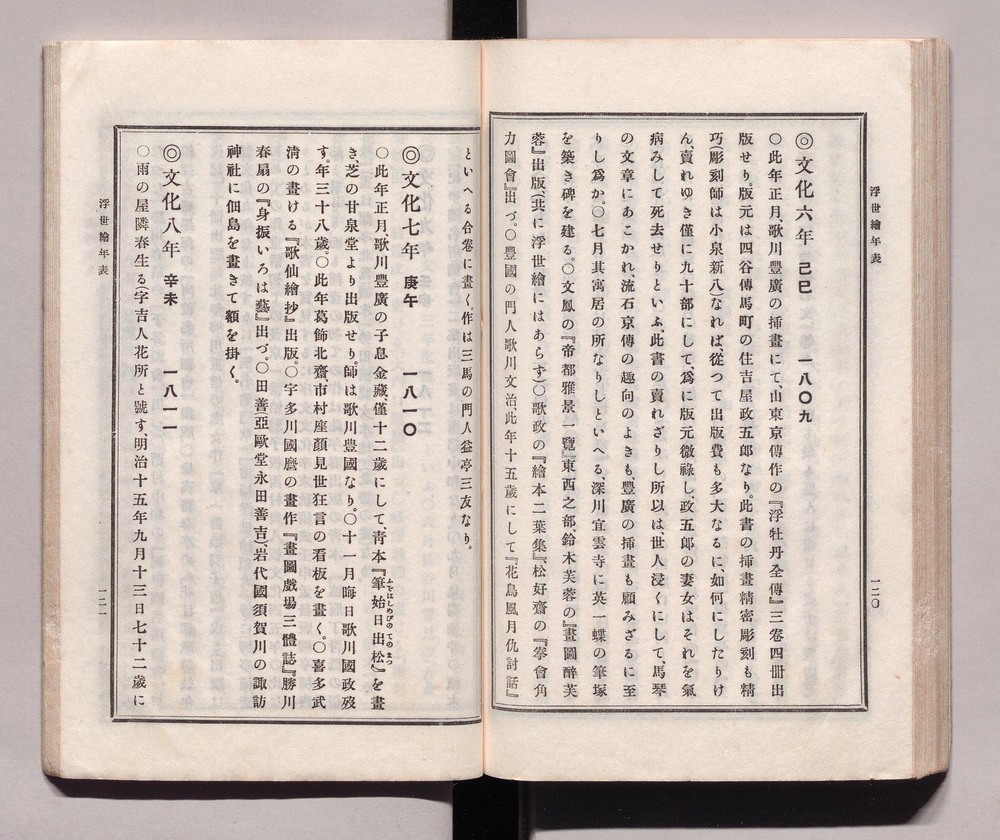 浮世繪年表
一二〇
◎文化六年 己巳 一八〇九
〇此年正月、歌川豐廣の挿畫にて、山東京傳作の『浮牡丹全傳』三卷四册出
版せり。版元は四谷傳馬町の住吉屋政五郎なり。此書の挿畫精密彫刻も精
巧(彫刻師は小泉新八)なれば、從つて出版費も多大なるに、如何にしたりけ
ん、賣れゆき僅に九十部にして、爲に版元微祿し、政五郎の妻女はそれを氣
病みして死去せりといふ。此書の賣れざりし所以は、世人浸くにして、馬琴
の文章にあこかれ、流石京傳の趣向のよきも、豐廣の挿畫も顧みざるに至
りし爲か。〇七月其寓居の所なりしといへる、深川宜雲寺に英一蝶の筆塚
を築き碑を建る。〇文鳳の『帝都雅景一覽』東西之部、鈴木芙蓉の『畫圖醉芙
蓉』出版、(共に浮世繪にはあらず)〇歌政の『繪本二葉集』松好齋の『拳會角
力圖會』出づ。〇豐國の門人歌川文治此年十五歲にして『花鳥風月仇討話』
といへる合卷に畫く、作は三馬の門人益亭三友なり。
◎文化七年 庚午 一八一〇
〇此年正月、歌川豐廣の子息金藏、僅十二歲にして、靑本『筆始日出松』を畫
ふではしめひのでのまつ
き、芝の甘泉堂より出版せり。師は歌川豐國なり。〇十一月晦日歌川國政歿
す。年三十八歲。〇此年葛飾北齋、市村座顏見世狂言の看板を畫く。〇喜多武
淸の畫ける『歌仙繪抄』出版。〇宇多川國麿の畫作『畫圖戲場三體誌』勝川
春扇の『身振いろは藝』出づ。〇田善(亞歐堂永田善吉)、岩代國須賀川の諏訪
神社に佃島を畫きて額を掛く。
◎文化八年 辛未 一八一一
〇雨の屋隣春生る(字吉人花所と號す、明治十五年九月十三日七十二歲に
浮世繪年表
一二一